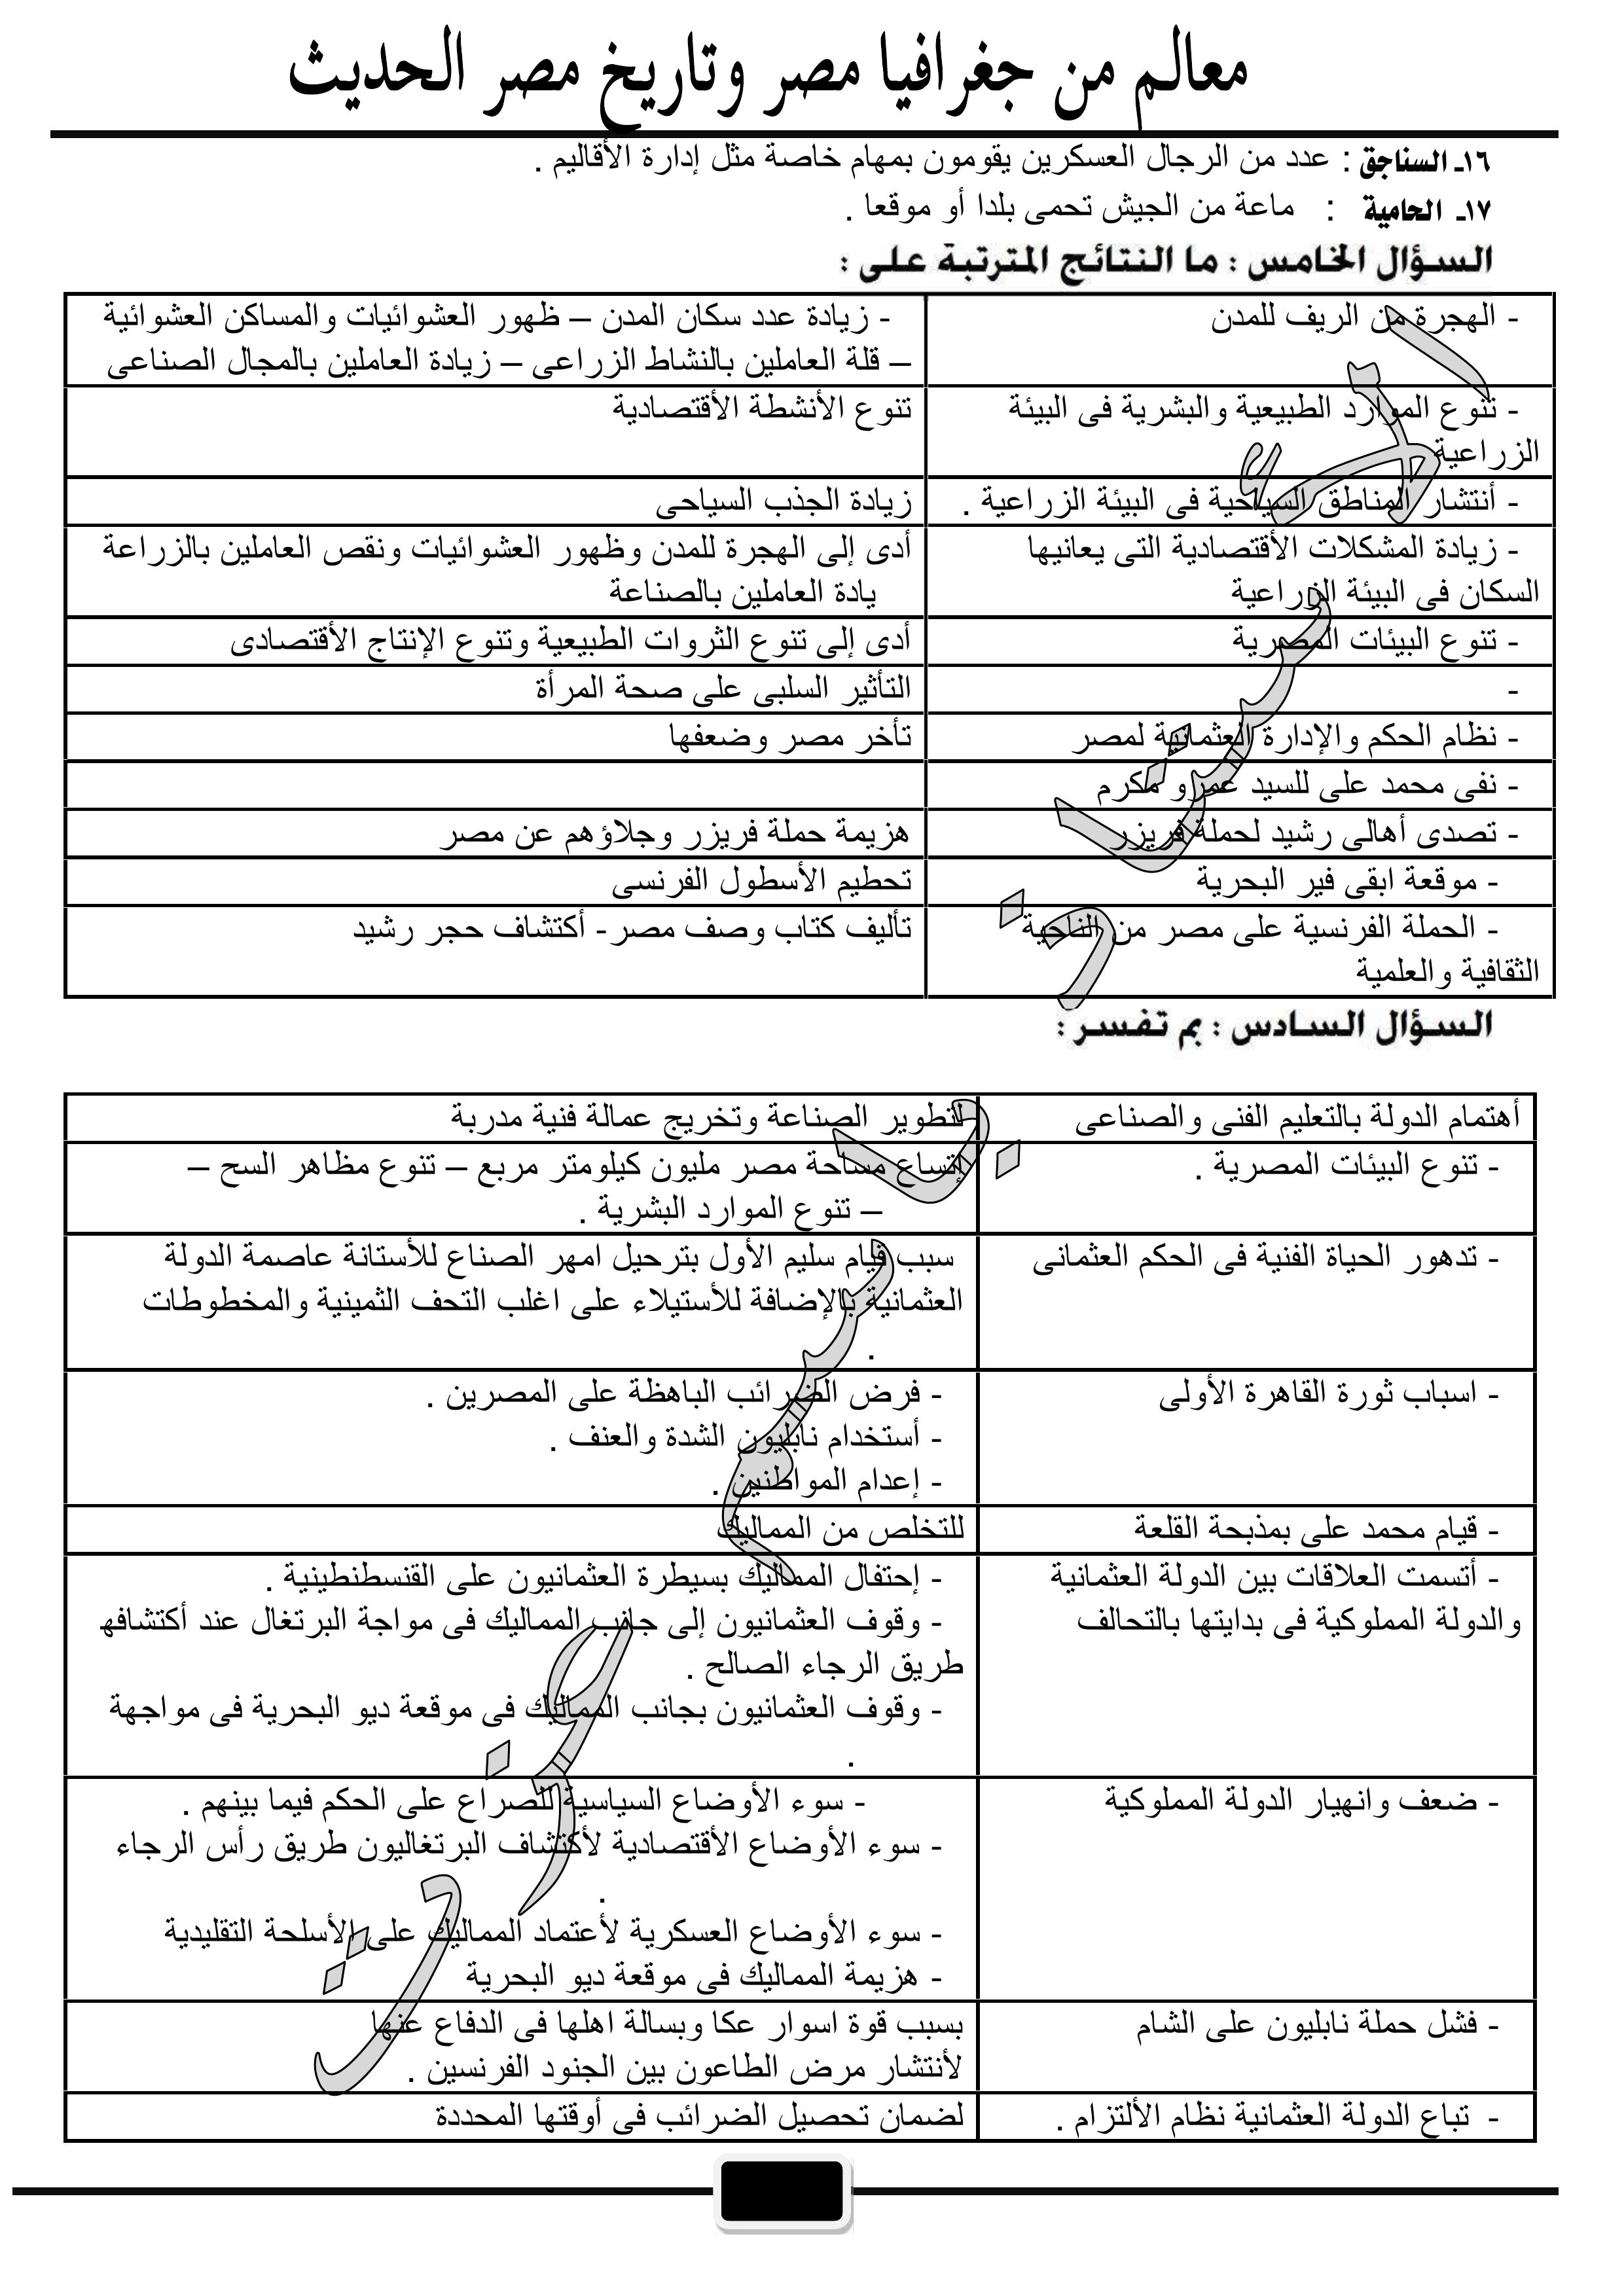 معالم من جغرافيا مصر وتاريخ مصر الحديث
١٦ـ السناجق : عدد من الرجال العسكرين يقومون بمهام خاصة مثل إدارة الأقاليم .
١٧ـ الحامية : ماعة من الجيش تحمى بلدا أو موقعا .
السؤال الخامس : ما النتائج المترتبة على :
- الهجرة من الريف للمدن
- زيادة عدد سكان المدن – ظهور العشوائيات والمساكن العشوائية
– قلة العاملين بالنشاط الزراعى – زيادة العاملين بالمجال الصناعى
- تنوع الموارد الطبيعية والبشرية فى البيئة
الزراعية
تنوع الأنشطة الأقتصادية
- أنتشار المناطق السياحية فى البيئة الزراعية .
زيادة الجذب السياحى
- زيادة المشكلات الأقتصادية التى يعانيها
السكان فى البيئة الزراعية
أدى إلى الهجرة للمدن وظهور العشوائيات ونقص العاملين بالزراعة
يادة العاملين بالصناعة
- تنوع البيئات المصرية
أدى إلى تنوع الثروات الطبيعية وتنوع الإنتاج الأقتصادى
-
التأثير السلبى على صحة المرأة
- نظام الحكم والإدارة العثمانية لمصر
تأخر مصر وضعفها
- نفى محمد على للسيد عمرو مكرم
- تصدى أهالى رشيد لحملة فريزر
هزيمة حملة فريزر وجلاؤهم عن مصر
- موقعة ابقى فير البحرية
تحطيم الأسطول الفرنسى
- الحملة الفرنسية على مصر من الناحية
الثقافية والعلمية
تأليف كتاب وصف مصر- أكتشاف حجر رشيد
السؤال السادس : بم تفسر :
أهتمام الدولة بالتعليم الفنى والصناعى
لتطوير الصناعة وتخريج عمالة فنية مدربة
- تنوع البيئات المصرية .
إتساع مساحة مصر مليون كيلومتر مربع – تنوع مظاهر السح –
– تنوع الموارد البشرية .
- تدهور الحياة الفنية فى الحكم العثمانى
سبب قيام سليم الأول بترحيل امهر الصناع للأستانة عاصمة الدولة
العثمانية بالإضافة للأستيلاء على اغلب التحف الثمينية والمخطوطات
.
- اسباب ثورة القاهرة الأولى
- فرض الضرائب الباهظة على المصرين .
- أستخدام نابليون الشدة والعنف .
- إعدام المواطنين .
- قيام محمد على بمذبحة القلعة
للتخلص من المماليك
- أتسمت العلاقات بين الدولة العثمانية
والدولة المملوكية فى بدايتها بالتحالف
- إحتفال المماليك بسيطرة العثمانيون على القنسطنطينية .
- وقوف العثمانيون إلى جانب المماليك فى مواجة البرتغال عند أكتشافه
طريق الرجاء الصالح .
- وقوف العثمانيون بجانب المماليك فى موقعة ديو البحرية فى مواجهة
.
- ضعف وانهيار الدولة المملوكية
- سوء الأوضاع السياسية للصراع على الحكم فيما بينهم .
- سوء الأوضاع الأقتصادية لأكتشاف البرتغاليون طريق رأس الرجاء
.
- سوء الأوضاع العسكرية لأعتماد المماليك على الأسلحة التقليدية
- هزيمة المماليك فى موقعة ديو البحرية
- فشل حملة نابليون على الشام
بسبب قوة اسوار عكا وبسالة اهلها فى الدفاع عنها
لأنتشار مرض الطاعون بين الجنود الفرنسين .
- تباع الدولة العثمانية نظام الألتزام .
لضمان تحصيل الضرائب فى أوقتها المحددة